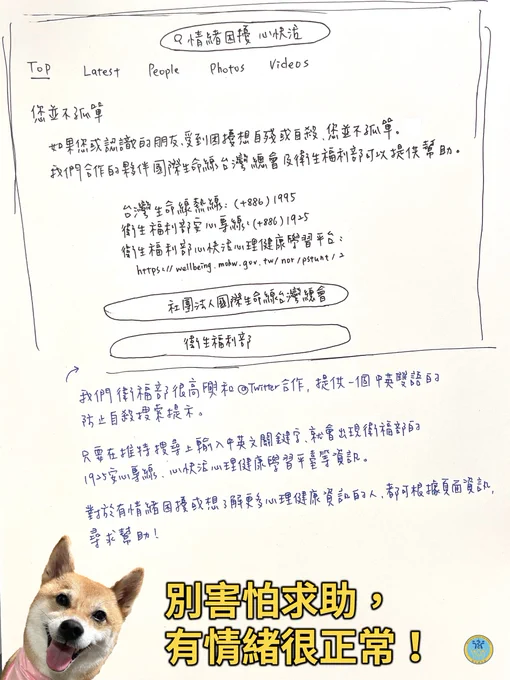 情緒困擾 心快活
Top Latest People Photos Videos
您並不孤單
如果您或認識的朋友,受到困擾想自殘或自殺,您並不孤單。
我們合作的夥伴國際生命線台灣總會及衛生福利部可以提供幫助。
台灣生命線熱線:(+886)1995
衛生福利部安心專線:(+886)1925
衛生福利部心快活心理健康學習平台:
https://wellbeing.mohw.gov.tw/nor/pstunt/2
社團法人國際生命線台灣總會
衛生福利部
我們衛福部很高興和@Twitter合作,提供一個中英雙語的
防止自殺搜索提示。
只要在推特搜尋上輸入中英文關鍵字,就會出現衛福部的
1925安心專線、心快活心理健康學習平臺等資訊。
對於有情緒困擾或想了解更多心理健康資訊的人,都可根據頁面資訊,
尋求幫助!
別害怕求助,
有情緒很正常!